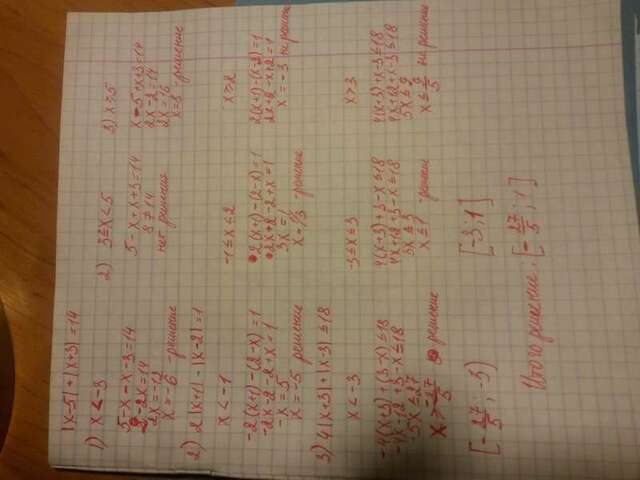 |x-5|+|x+3|=14
1) x<-3
5-x-x-3=14
2-2x=14
2x=-12
x=-6 -решение
2) 3≤x<5
5-x+x+3=14
8≠14
нет решения
3) x≥5
x-5+x+3=14
2x-2=14
2x=16
x=8 -решение
2) 2|x+1|-|x-2|=1
x<-1
-2(x+1)-(2-x)=1
-2x-2-2+x=1
-x=5
x=-5 решение
-1≤x<2
2(x+1)-(2-x)=1
2x+2-2+x=1
3x=1
x=1/3 -решение
x≥2
2(x+1)-(x-2)=1
2x+2-x+2=1
x=-3 не решение
3) 4|x+3|+|x-3|≤18
x<-3
-4(x+3)+(3-x)≤18
-4x-12+3-x≤18
-5x≤27
x>-27/5 решение
[-27/5; -3)
-3≤x≤3
4(x+3)+3-x≤18
4x+12+3-x≤18
3x≤3
x≤1 -решение
[-3;1]
x>3
4(x+3)+x-3≤18
4x+12+x-3≤18
5x≤9
x≤9/5 не решение
Итого решение: [-27/5; 1]